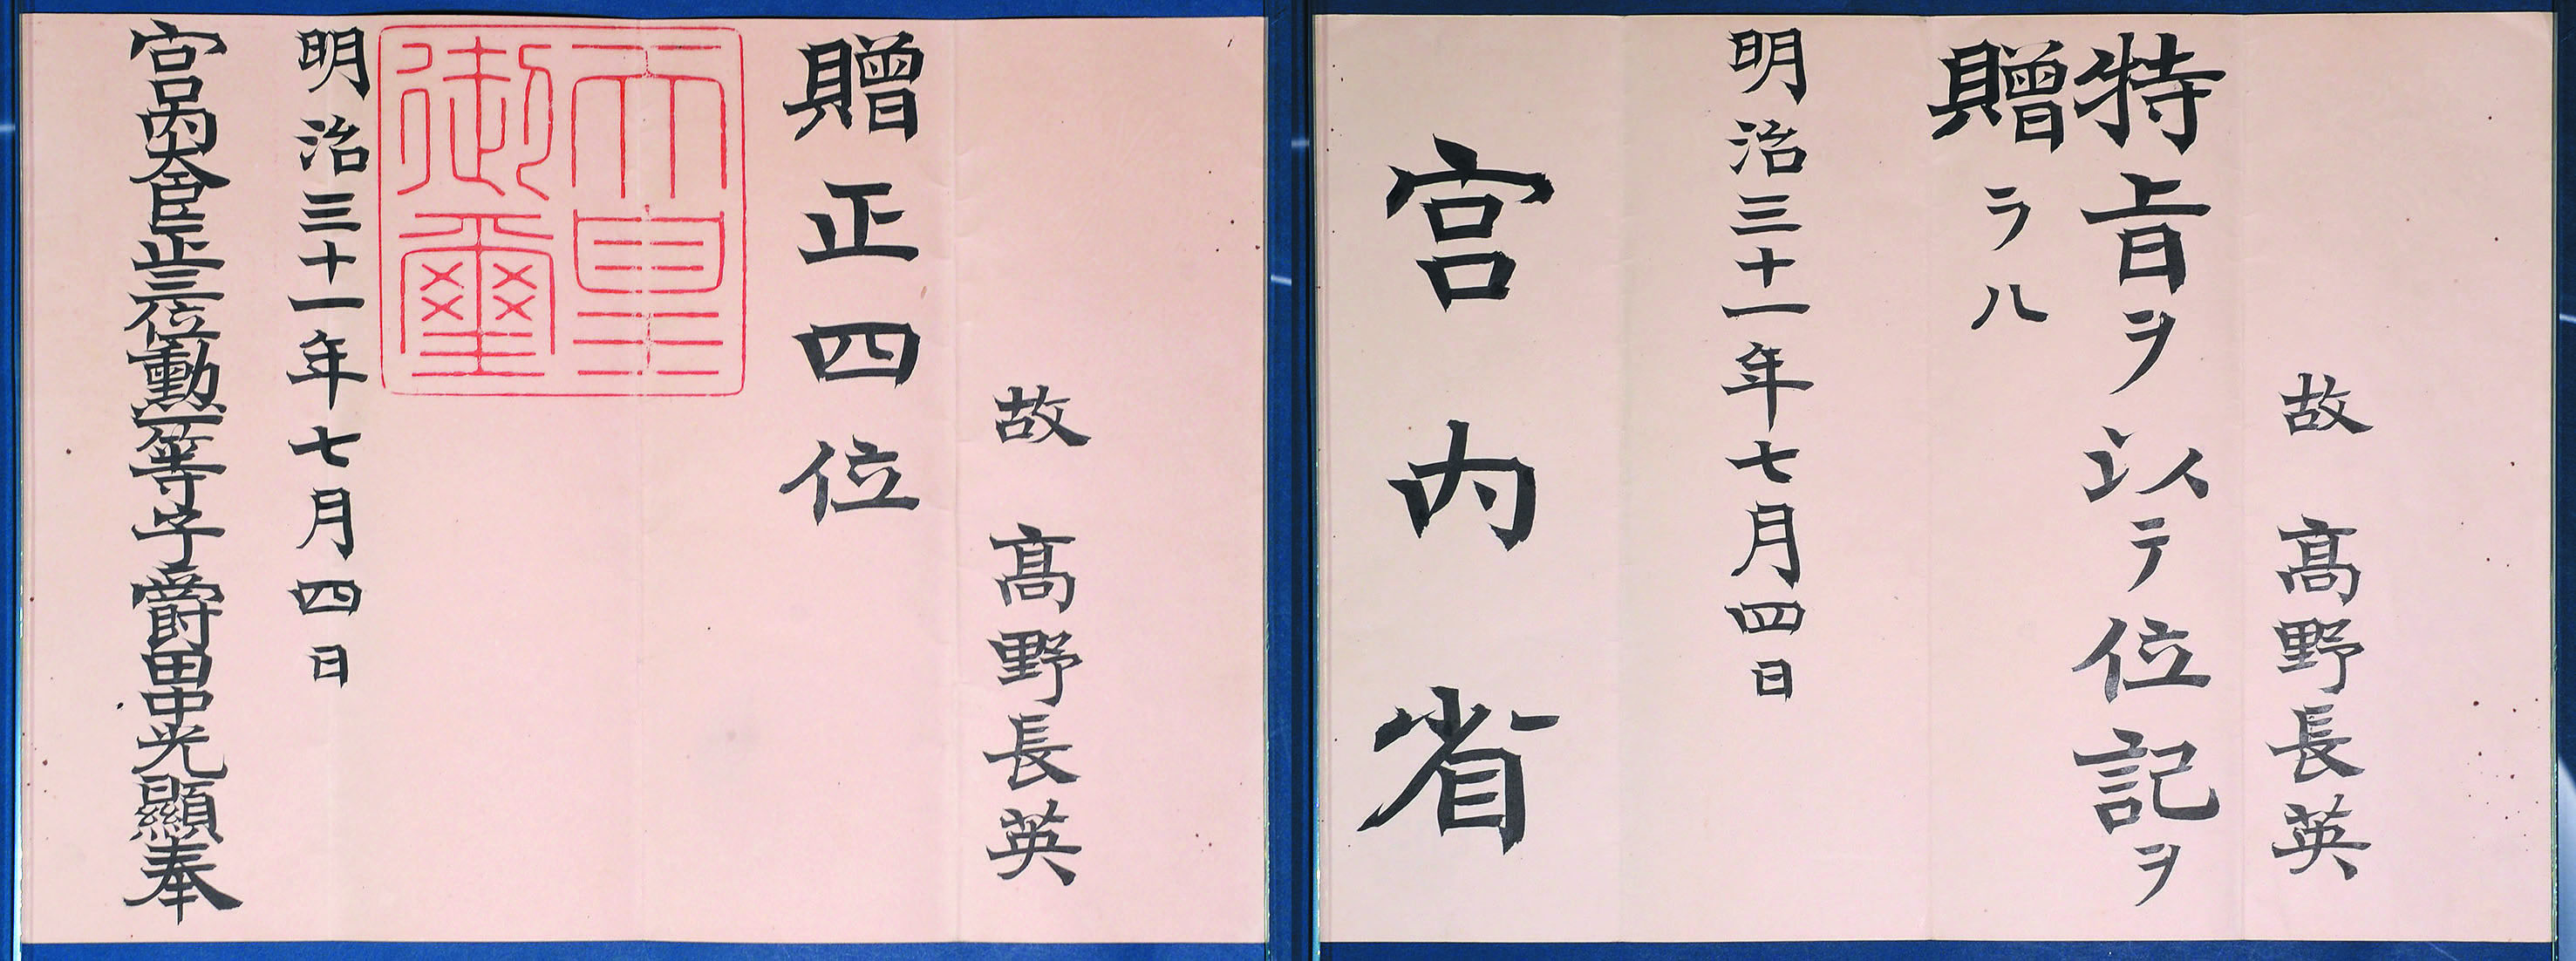 故 髙野長英
特旨ヲ以テ位記ヲ
贈ラル
明治三十一年七月四日
宮内省
故 髙野長英
贈正四位
天皇
御璽
明治三十一年七月四日
宮内大臣正三位勳一等子爵田中光顯奉